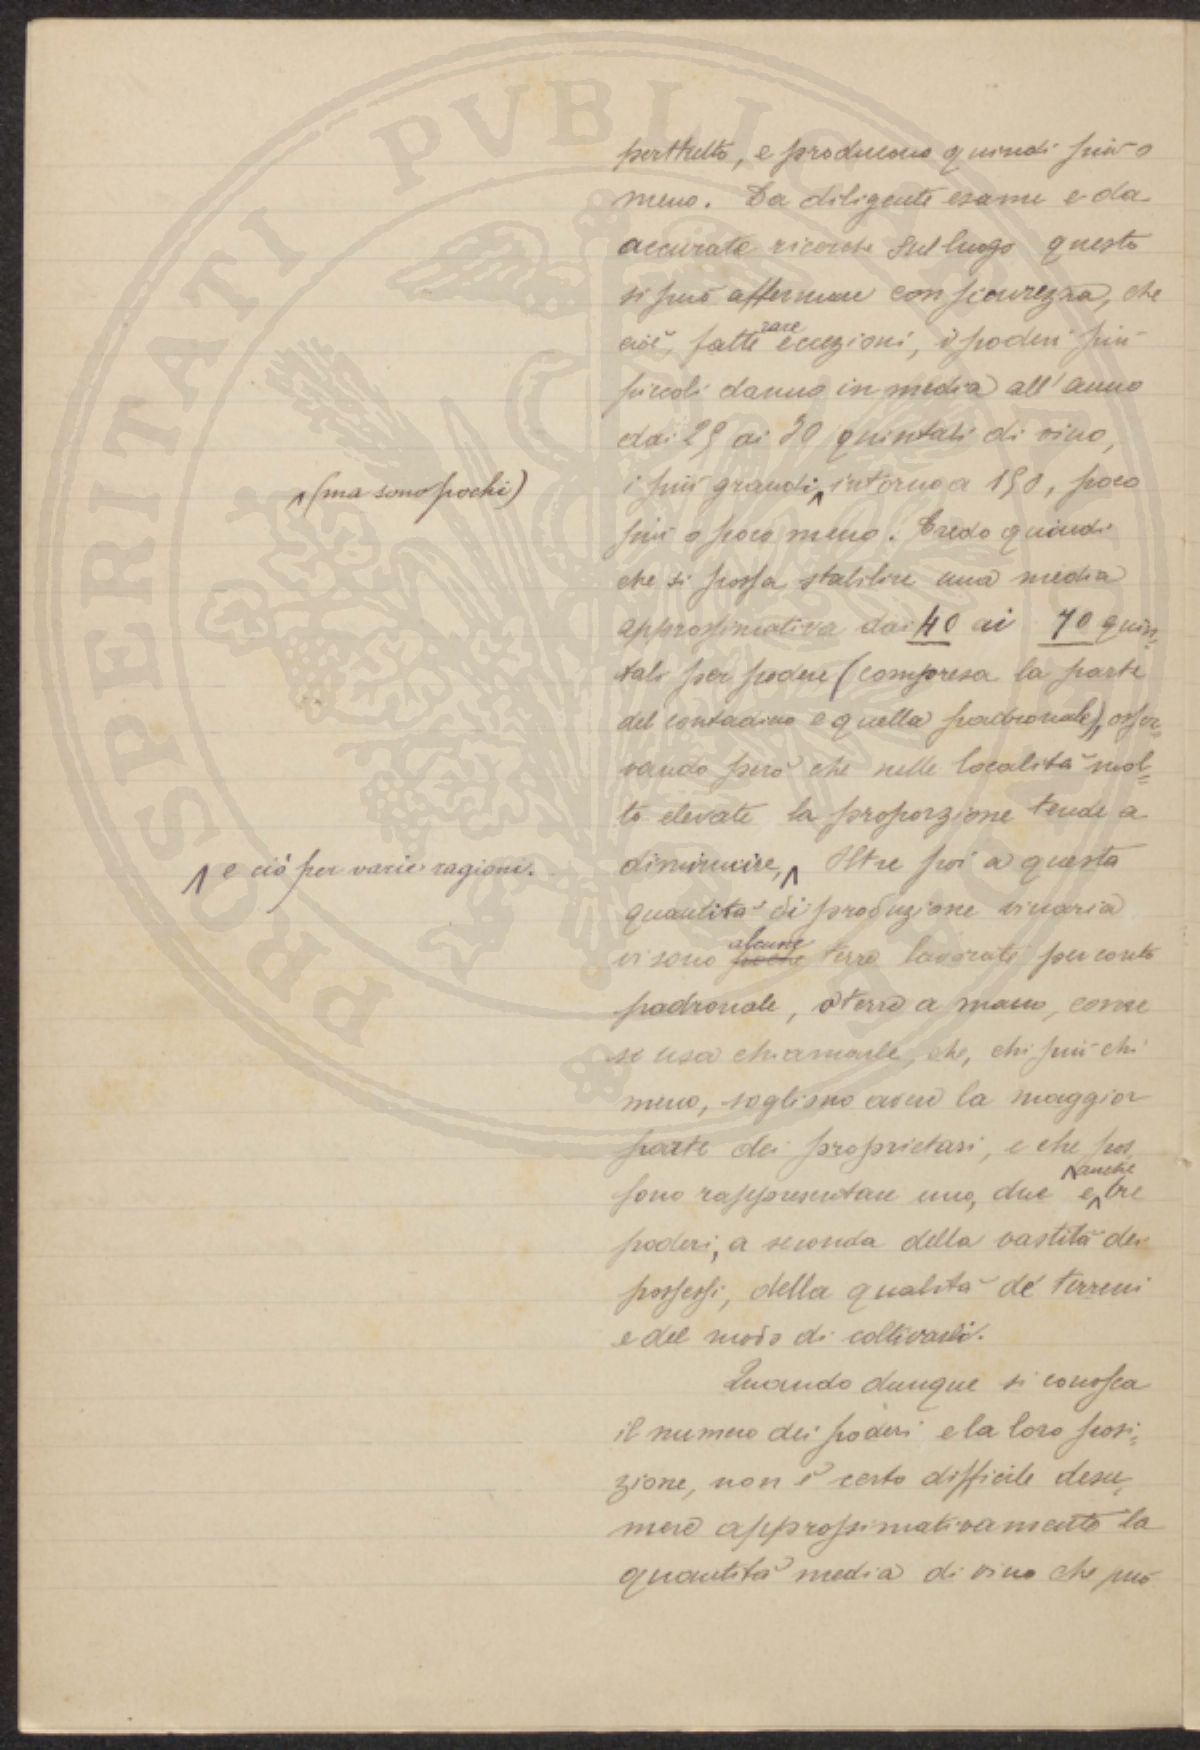 PROSPERITATI PVBLICAE AVGENDAE
pertutto, e producono quindi più o
meno. Da diligente esame e da
accurate ricerche sul luogo questo
si può affermare con sicurezza, che
cioè, fatte rare eccezioni, i poderi più
piccoli danno in media all'anno
dai 25 ai 30 quintali di vino,
i più grandi, ^ intorno a 150, poco
^ (ma sono pochi)
più o poco meno. Credo quindi
che si possa stabilire una media
approssimativa dai 40 ai 70 quin=
tali per podere (compresa la parte
del contadino e quella padronale), osser=
vando però che nelle località mol=
to elevate la proporzione tende a
diminuire, ^ Oltre poi a questa
^ e ciò per varie ragioni.
quantità di produzione vinaria
vi sono poche alcune terre lavorate per conto
padronale, o terre a mano, come
si usa chiamarle, che, chi più chi
meno, sogliono avere la maggior
parte dei proprietari, e che pos
sono rappresentare uno, due e ^ anche tre
poderi, a seconda della vastità dei
possessi, della qualità de' terreni
e del modo di coltivarli.
Quando dunque si conosca
il numero dei poderi e la loro posi=
zione, non è certo difficile desu=
mere approssimativamente la
quantità media di vino che può